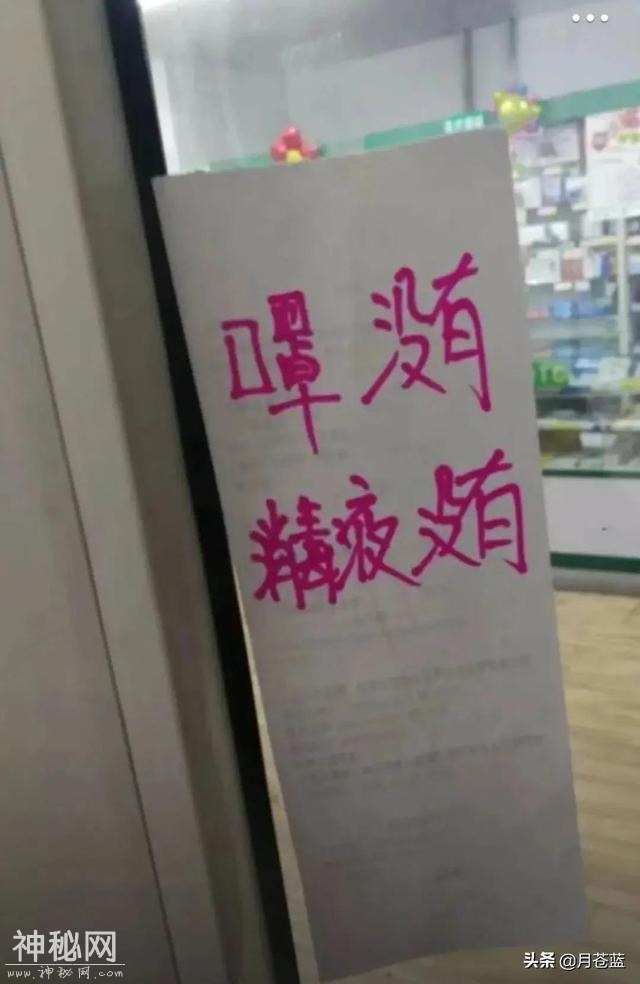 口罩 没有
消毒液没有
神秘网
www.神秘网.com
头条 @月苍蓝